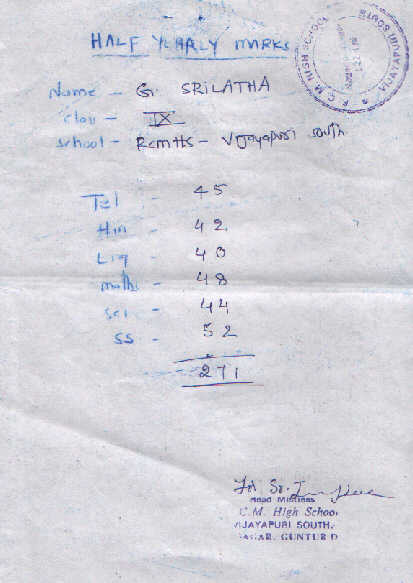 HALF YEARLY MARKS
Name - G. SRILATHA
class - IX
school - RCMHS - Vijayapuri South
Tel - 45
Hin - 42
Eng - 40
maths - 48
sci - 44
SS - 52
271
R.C.M. HIGH SCHOOL
VIJAYAPURI SOUTH
Head Mistress
C.M. High School
VIJAYAPURI SOUTH.
SAGAR. GUNTUR D